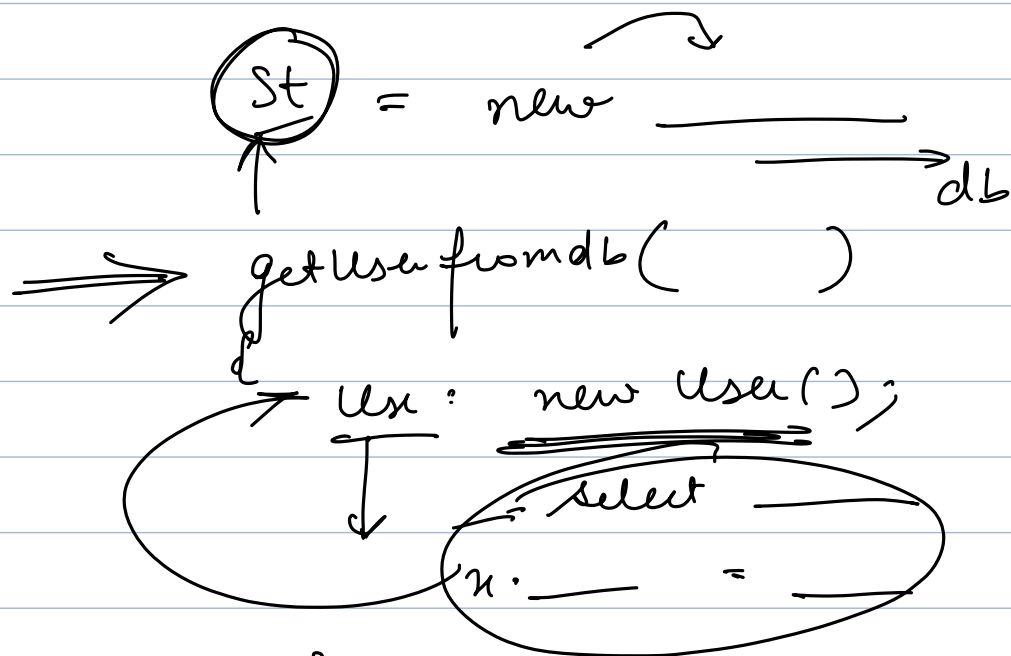 St = new ____
db
getUserfromdb( )
{
Use : new User();
select ____
x. ____ = ____